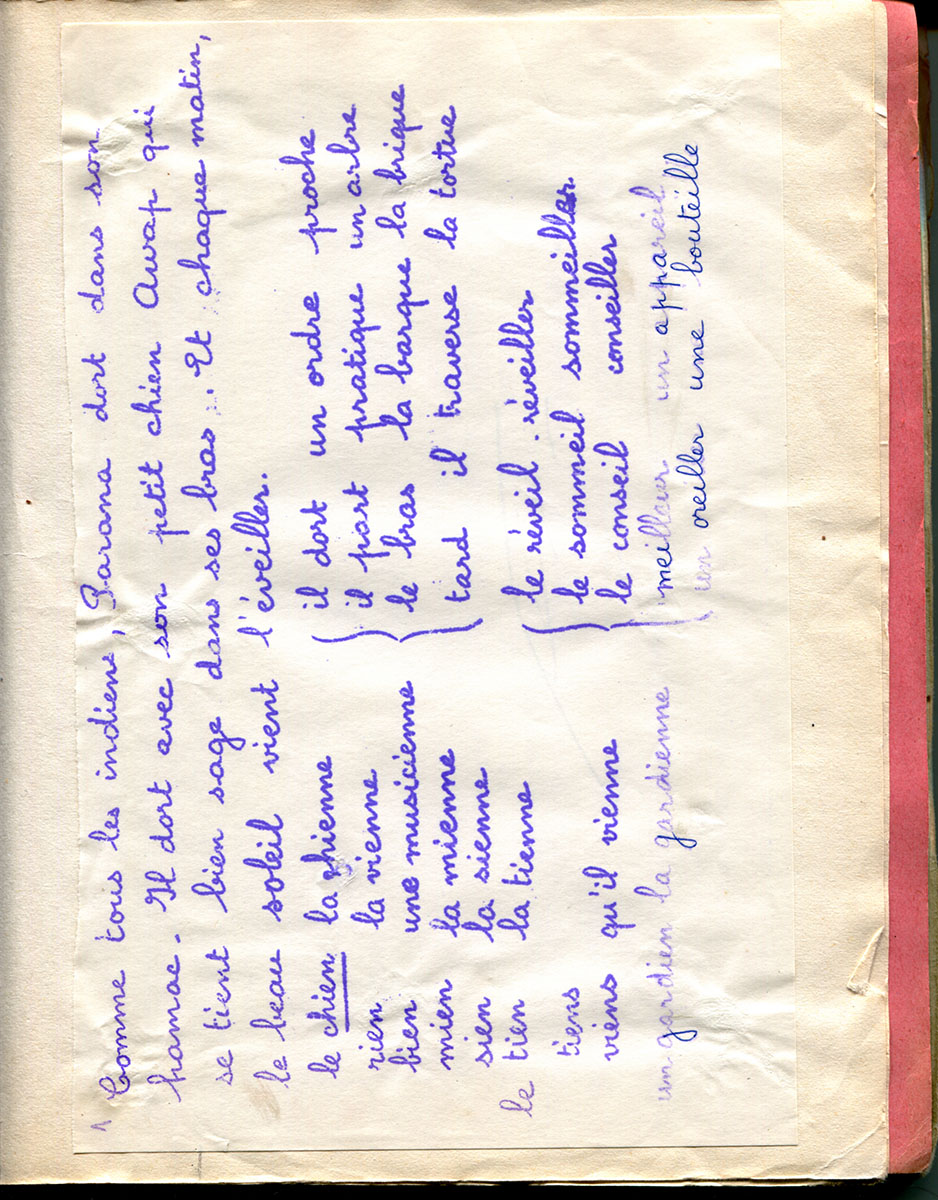 1 Comme tous les indiens, Parana dort dans son
hamac. Il dort avec son petit chien Awap qui
se tient bien sage dans ses bras... Et chaque matin,
le beau soleil vient l'éveiller.
le chien la chienne
rien la vienne
bien une musicienne
mien la mienne
sien la sienne
le tien la tienne
tiens
viens qu'il vienne
un gardien la gardienne
il dort un ordre proche
il part pratique un arbre
le bras la barque la brique
tard il traverse la tortue
le réveil. réveiller
le sommeil sommeiller
le conseil conseiller
meilleur un appareil
un oreiller une bouteille